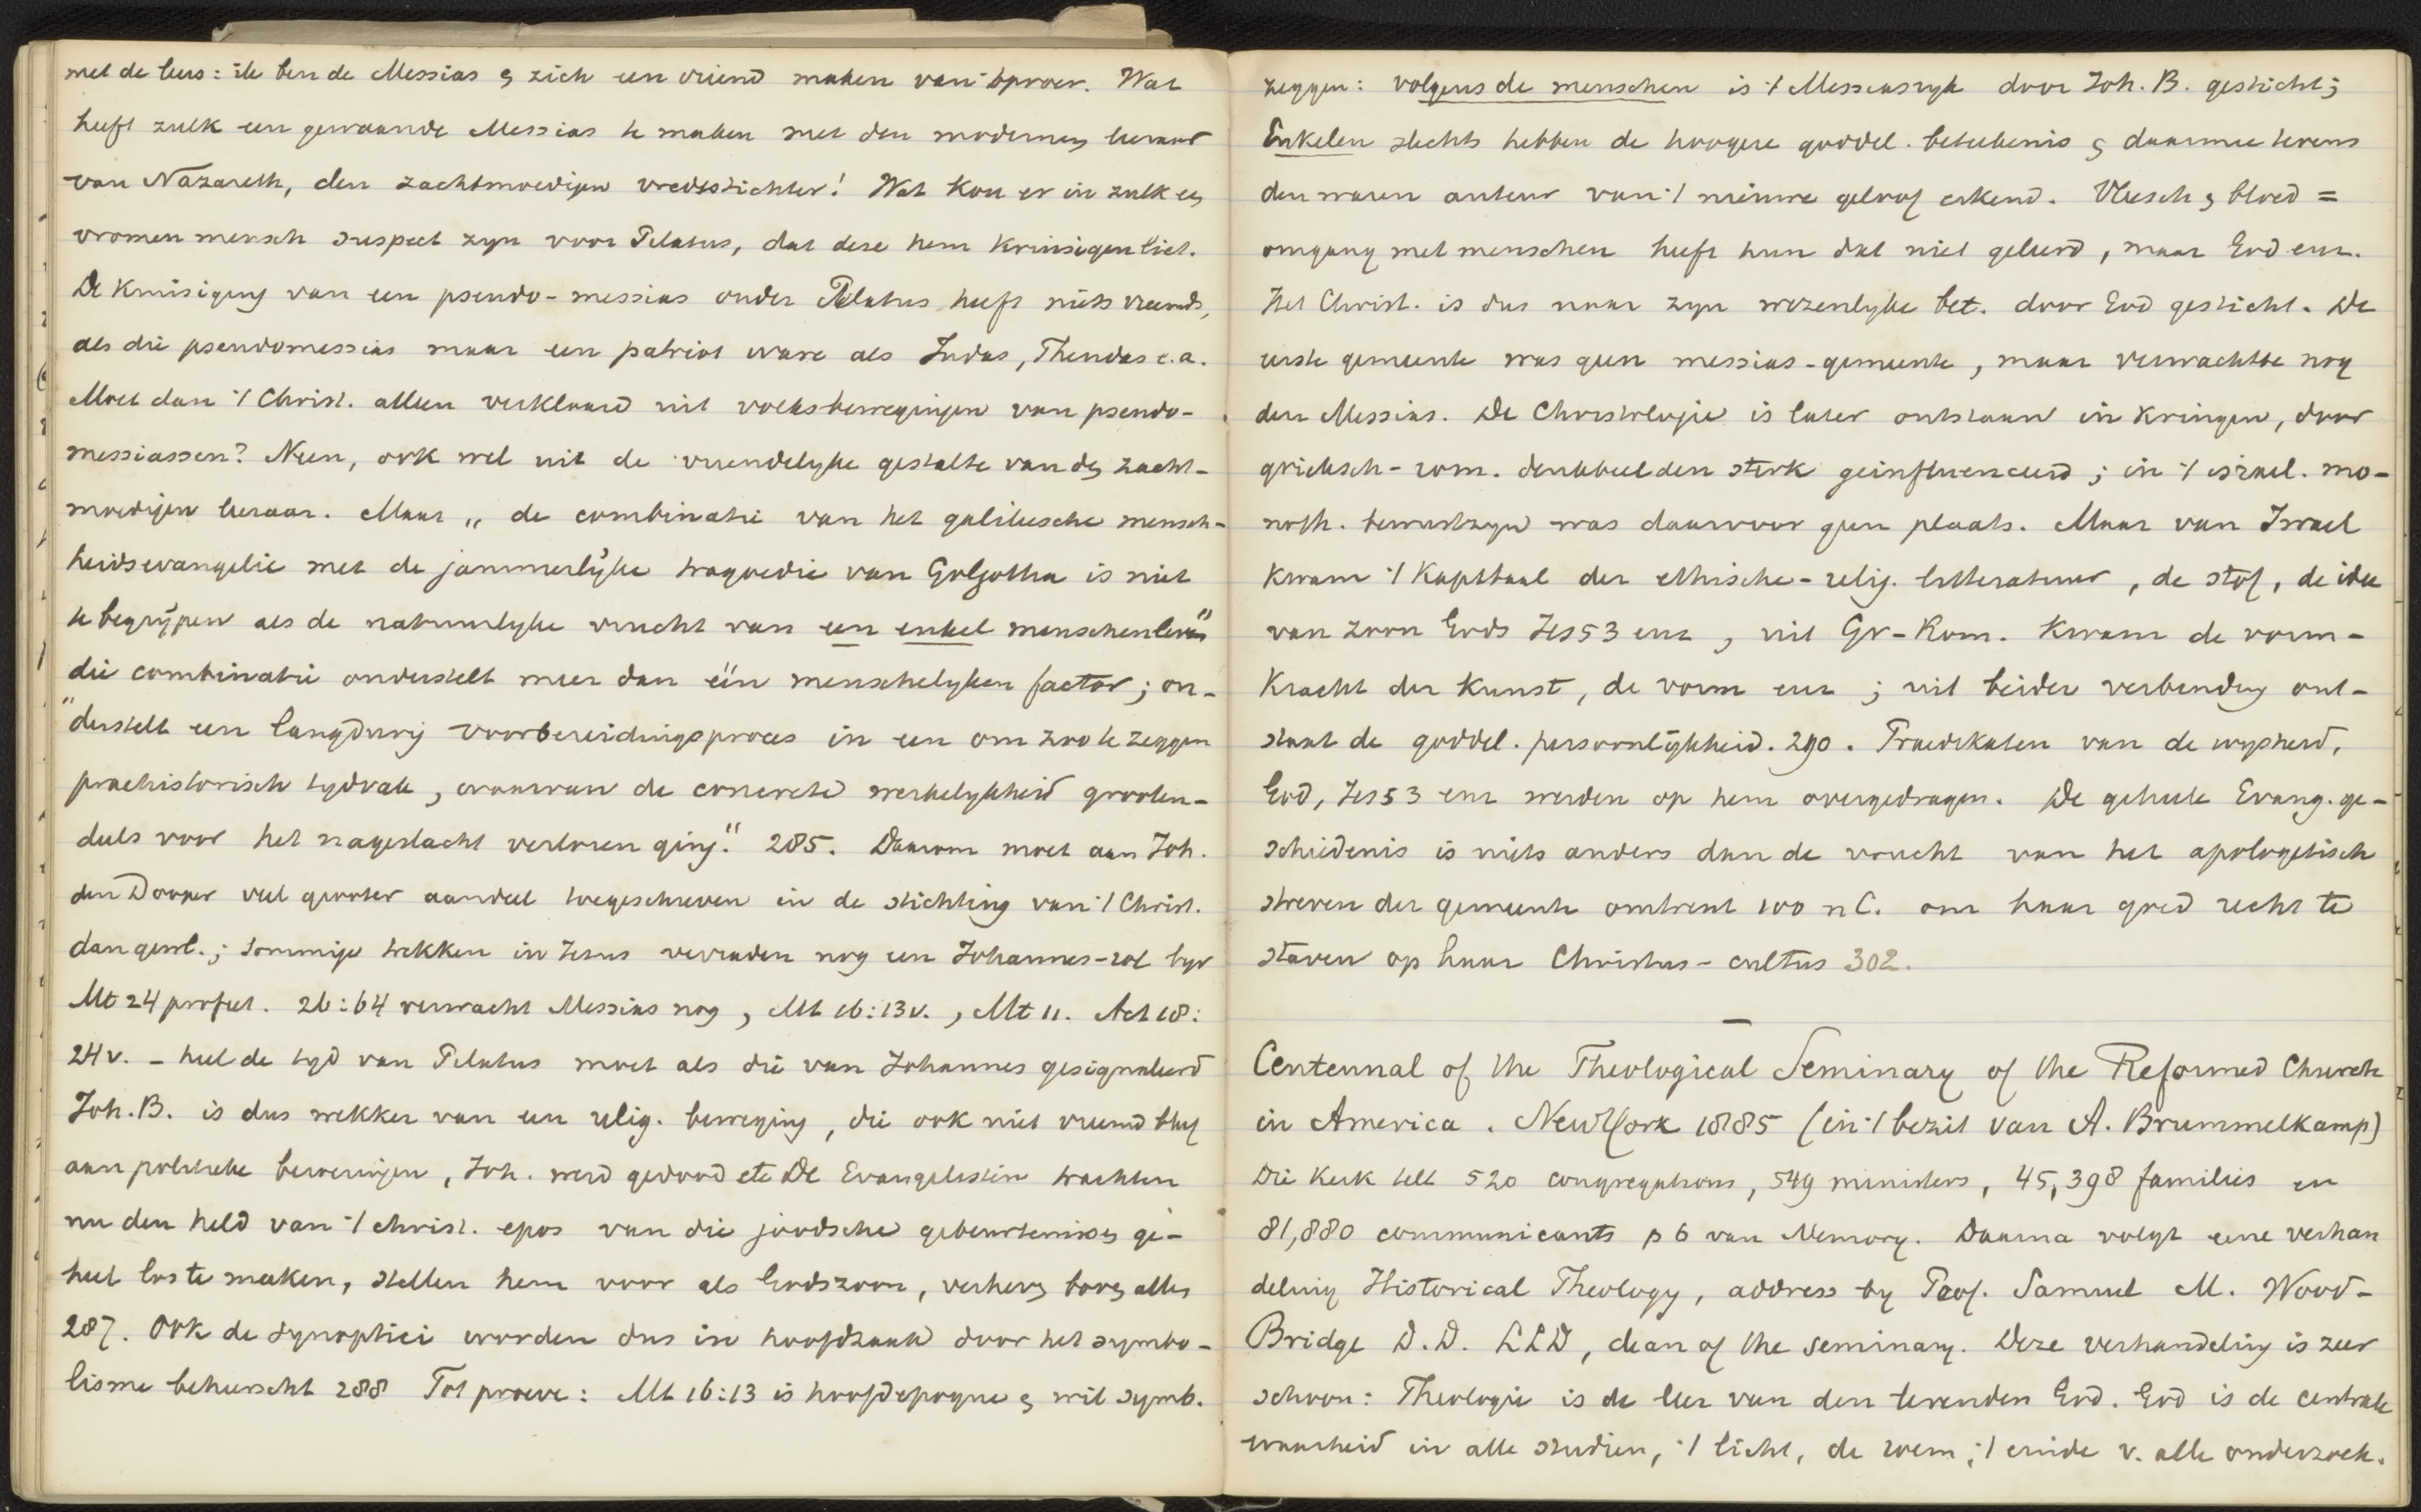 met de leus: ik ben de Messias & zich een vriend maken van 't oproer. Wat
heeft zulk een gewaande Messias te maken met den modernen leeraar
van Nazareth, den zachtmoedigen vredestichter! Wat kon er in zulk een
vromen mensch suspect zyn voor Pilatus, dat deze hem kruisigen liet.
De kruisiging van een pseudo-messias onder Pilatus heeft niets vreemds,
als die pseudomessias maar een patriot ware als Judas, Theudas e.a.
Moet dan 't Christ. alleen verklaard uit volksbewegingen van pseudo-
messiassen? Neen, ook wel uit de vriendelyke gestalte van den zacht-
moedigen leeraar. Maar „de combinatie van het galileesche mensch-
heidsevangelie met de jammerlijke tragoedie van Golgotha is niet
te begrijpen als de natuurlyke vrucht van een enkel menschenleven"
die combinatie onderstelt meer dan één menschelyken factor; on-
"derstelt een langdurig voorbereidingsproces in een om zoo te zeggen
praehistorisch tydvak, waarvan de concrete werkelykheid grooten-
deels voor het nageslacht verloren ging." 285. Daarom moet aan Joh.
den Dooper veel grooter aandeel toegeschreven in de stichting van 't Christ.
dan gewl.; sommige trekken in Jesus verraden nog een Johannes-rol byv
Mt 24 profeet. 26:64 verwacht Messias nog, Mt 16:13v., Mt 11. Act 18:
24v. - heel de tyd van Pilatus moet als die van Johannes gesignaleerd
Joh. B. is dus wekker van een relig. beweging, die ook niet vreemd bleef
aan politieke bewegingen, Joh. werd gedood etc De Evangelisten trachten
nu den held van 't christ. epos van die joodsche gebeurtenissen ge-
heel los te maken, stellen hem voor als Godszoon, verheven boven alles
287. Ook de synoptici worden dus in hoofdzaak door het symbo-
lisme beheerscht 288 Tot proeve: Mt 16:13 is hoofdepogue & wil symb.
zeggen: volgens de menschen is 't Messiasryk door Joh. B. gesticht;
Enkelen slechts hebben de hoogere goddel. beteekenis & daarmee tevens
den waren auteur van 't nieuwe geloof erkend. Vleesch & bloed =
omgang met menschen heeft hun dat niet geleerd, maar God enz.
Het Christ. is dus naar zyn wezenlyke bet. door God gesticht. De
eerste gemeente was geen messias-gemeente, maar verwachtte nog
den Messias. De Christologie is later ontstaan in kringen, door
grieksch-rom. denkbeelden sterk geinfluenceerd; in 't israel. mo-
noth. bewustzyn was daarvoor geen plaats. Maar van Israel
kwam 't Kapitaal der ethische-relig. litteratuur, de stof, de idee
van zoon Gods Jes 53 enz, uit Gr-Rom. kwam de vorm-
kracht der kunst, de vorm enz; uit beider verbinding ont-
staat de goddel. persoonlijkheid. 290. Praedikaten van de wysheid,
God, Jes 53 enz werden op hem overgedragen. De geheele Evang. ge-
schiedenis is niets anders dan de vrucht van het apologetisch
streven der gemeente omtrent 100 n C. om haar goed recht te
staven op haar Christus-cultus 302.
Centennal of the Theological Seminary of the Reformed Church
in America. New York 1885 (in 't bezit van A. Brummelkamp)
Die Kerk telt 520 congregations, 549 ministers, 45,398 families en
81,880 communicants p 6 van Memory. Daarna volgt eene verhan
deling Historical Theology, address by Prof. Samuel M. Wood-
Bridge D.D. LLD, dean of the seminary. Deze verhandeling is zeer
schoon: Theologie is de leer van den levenden God. God is de centrale
waarheid in alle studien, 't licht, de roem, 't einde v. alle onderzoek.